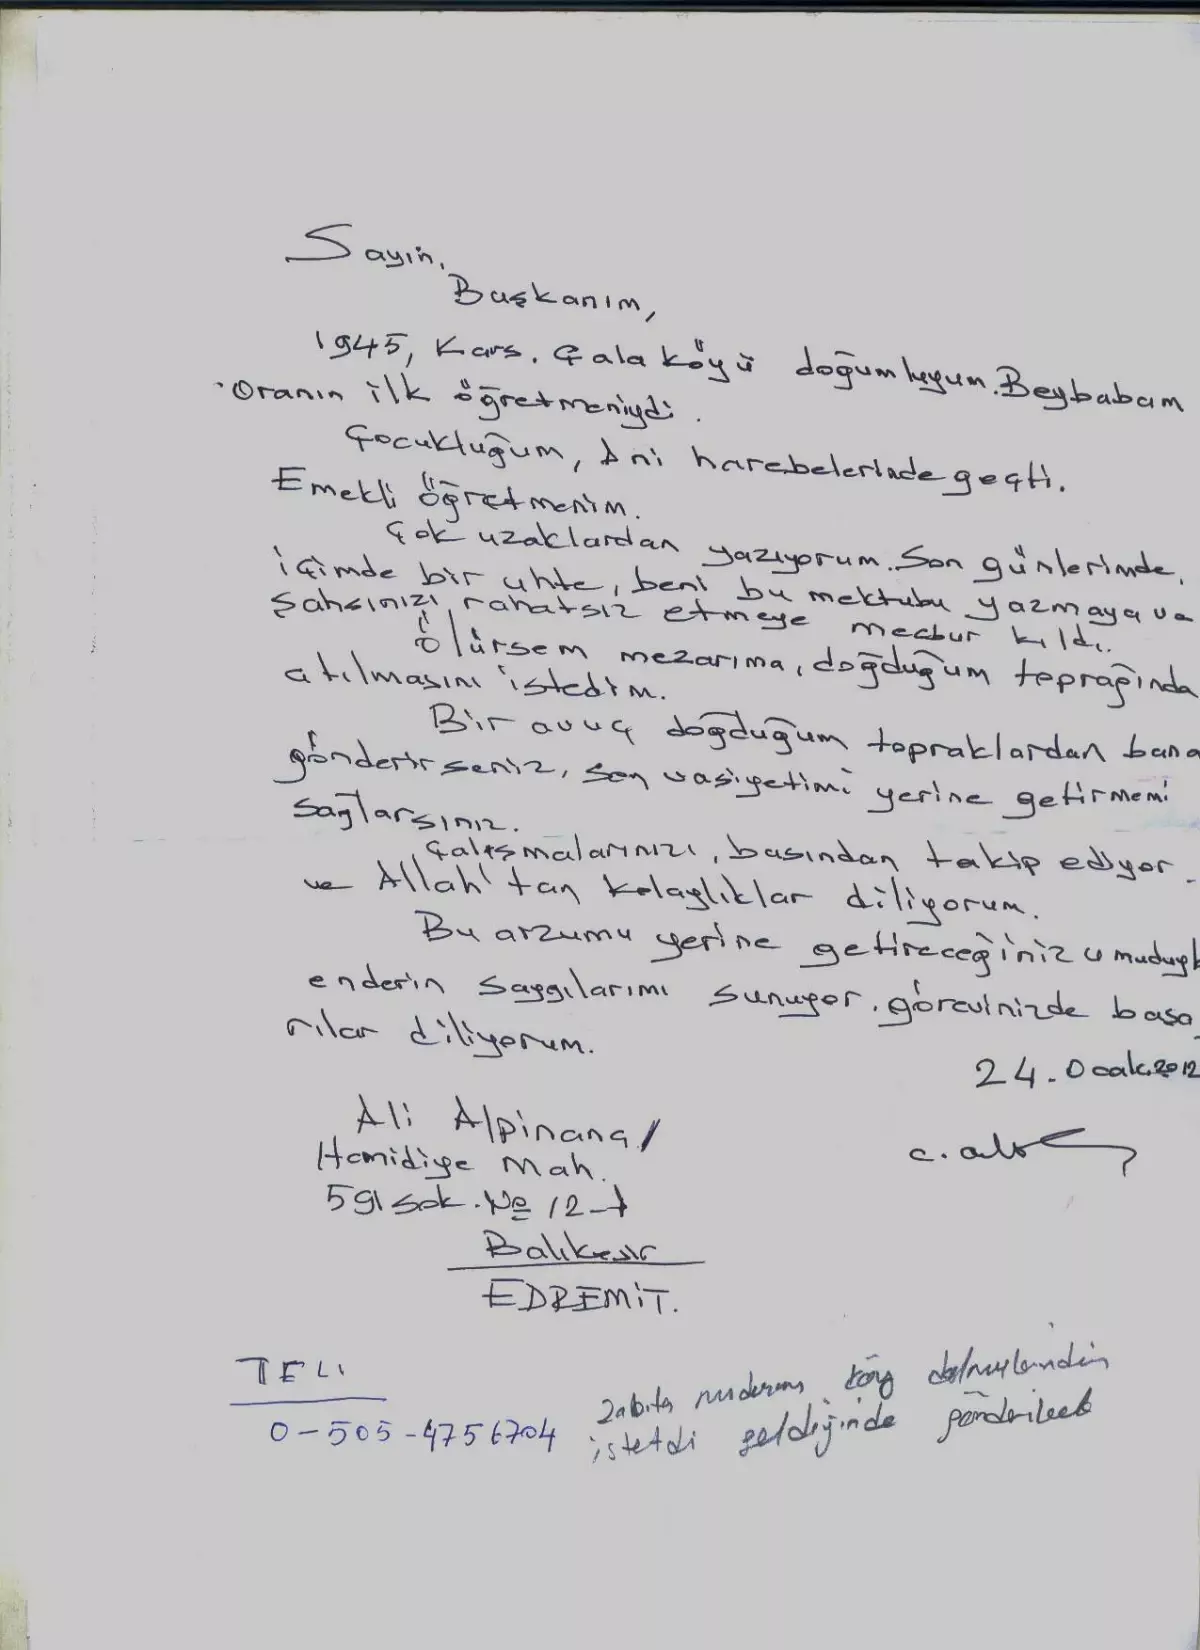 Sayın,
Başkanım,
1945, Kars. Çala köyü doğumluyum. Beybabam
Oranın ilk öğretmeniydi.
Çocukluğum, Ani harebelerinde geçti.
Emekli öğretmenim.
Çok uzaklardan yazıyorum. Son günlerimde,
içimde bir uhte, beni bu mektubu yazmaya ve
şahsınızı rahatsız etmeye mecbur kıldı.
Ölürsem mezarıma, doğduğum toprağında
atılmasını istedim.
Bir avuç doğduğum topraklardan bana
gönderirseniz, son vasiyetimi yerine getirmemi
sağlarsınız.
Çalışmalarınızı, basından takip ediyor.
ve Allah'tan kolaylıklar diliyorum.
Bu arzumu yerine getireceğiniz umuduyla
enderin saygılarımı sunuyor. görevinizde başa
rılar diliyorum.
24. Ocak.2012
Ali Alpinana/
Hamidiye Mah.
591 sok. No 12-A
Balıkesir
EDREMİT.
TELI
0-505-4756704
Zabıta köy
istetdi geldiğinde gönderilecek